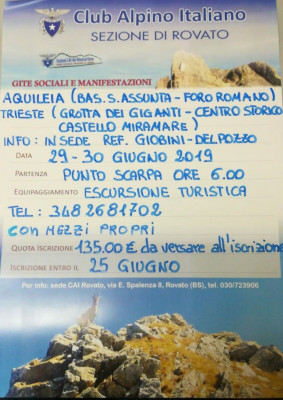 Club Alpino Italiano
SEZIONE DI ROVATO
GITE SOCIALI E MANIFESTAZIONI
AQUILEIA (BAS. S. ASSUNTA - FORO ROMANO)
TRIESTE (GROTTA DEI GIGANTI - CENTRO STORICO
CASTELLO MIRAMARE)
INFO: IN SEDE REF. GIOBINI - DELPOZZO
DATA 29-30 GIUGNO 2019
PARTENZA PUNTO SCARPA ORE 6.00
EQUIPAGGIAMENTO ESCURSIONE TURISTICA
TEL: 348 2681702
CON MEZZI PROPRI
QUOTA ISCRIZIONE 135.00 € da versare all'iscrizione
ISCRIZIONE ENTRO IL 25 GIUGNO
Per info: sede CAI Rovato, via E. Spalenza 8, Rovato (BS), tel. 030/723906